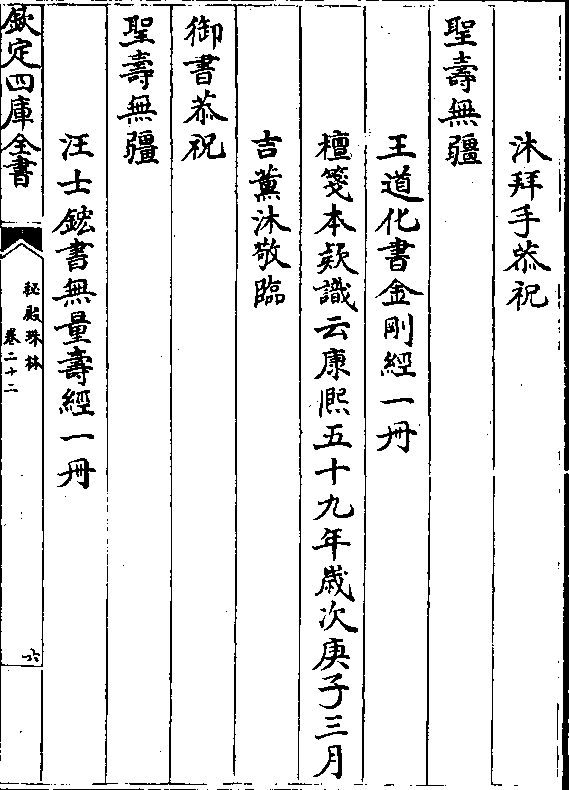 沐拜手恭祝
聖壽無疆
王道化書金剛經一冊
檀箋本款識云康熙五十九年歲次庚子三月
吉薰沐敬臨
御書恭祝
聖壽無疆
汪士鋐書無量壽經一冊
欽定四庫全書
秘殿珠林
卷二十二
六